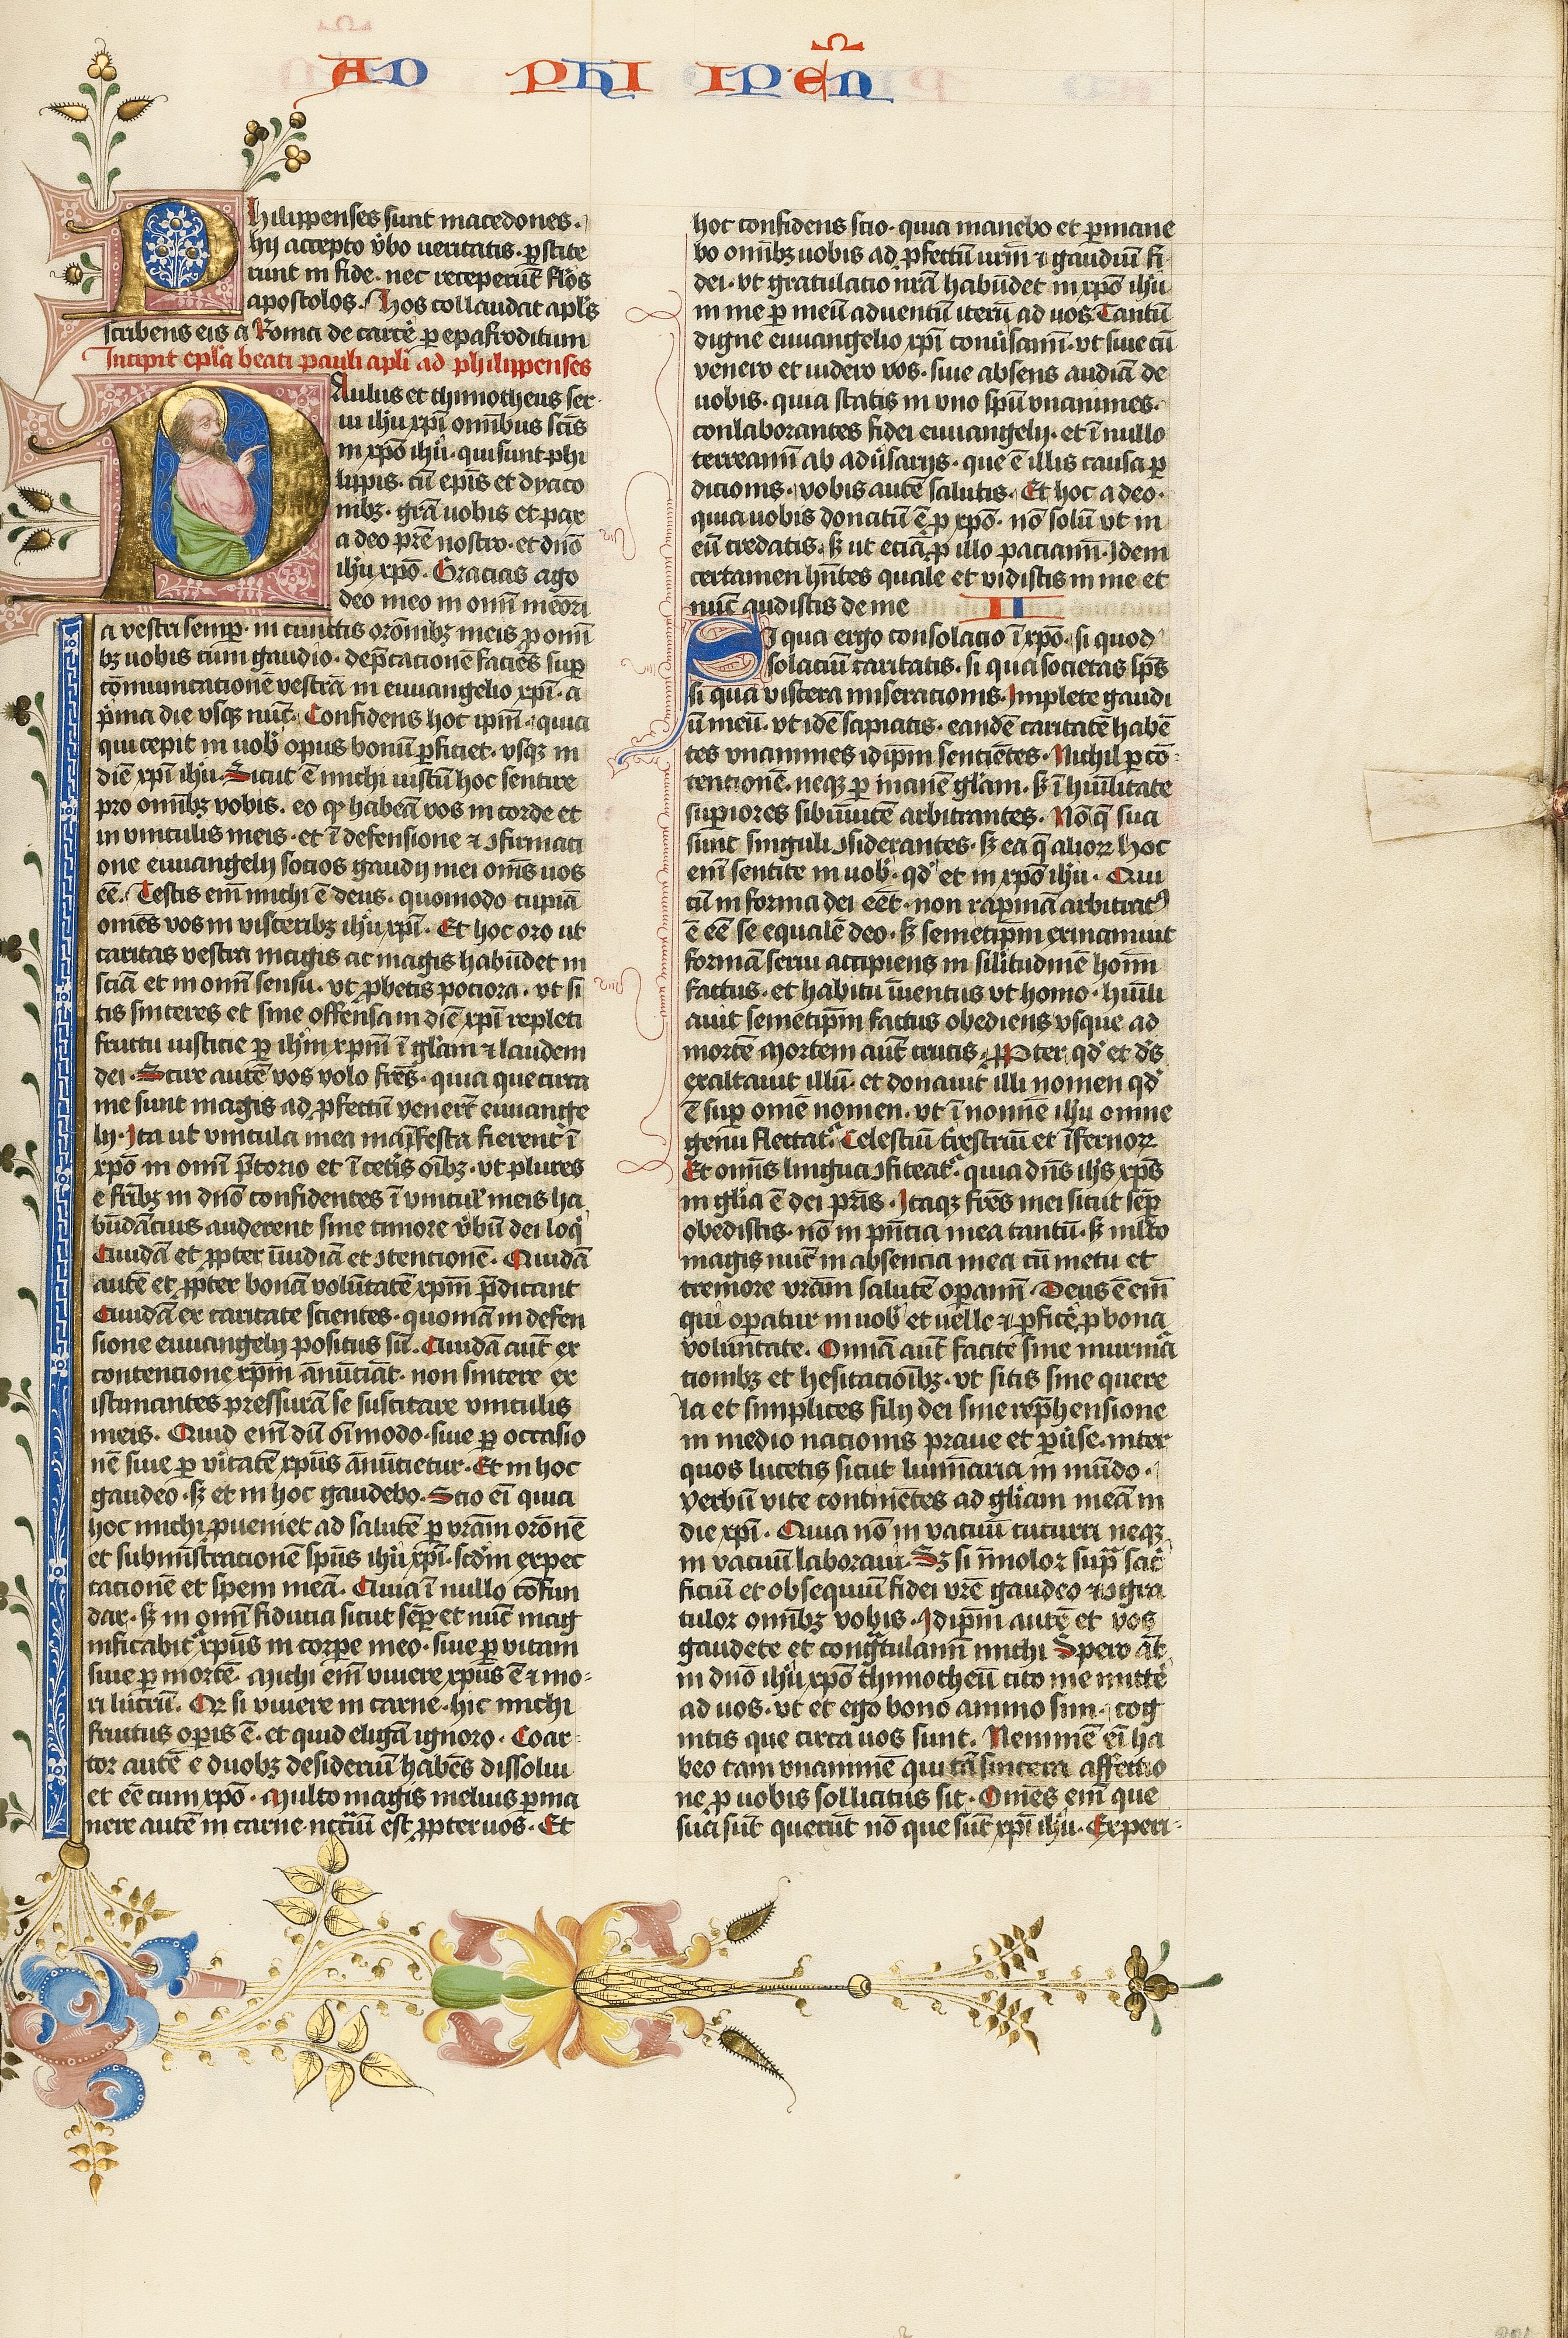 AD PHI IPEN
Philippenses sunt macedones.
hii accepto v̄bo ueritatis. p̱stite
runt in fide. nec receperūt flōs
apostolos. Hos collaudat apl's
scribens eis a Roma de carcē p̱ epafroditum
Incipit ep̄la beati pauli apl̄i ad philippenses
PAulus et thimotheus ser
ui ih̄u xp̄i omnibus sc̄is
in xp̄o ih̄u. qui sunt phi
lippis. cū ep̄is et dyaco
nibꝫ. grā uobis et pax
a deo pr̄e nostro. et dn̄o
ih̄u xp̄o. Gracias ago
deo meo in om̄i meōri
a vestri semp̱. in cunctis orōnibꝫ meis p̱ omī
bꝫ uobis cum gaudio. dep̄cationē faciēs sup̱
cōmunicationē vestrā in euuangelio xp̄i. a
p̄ma die vsqꝫ nūc. Confidens hoc ip̄m. quia
qui cepit in uob̄ opus bonū p̱ficiet. vsqꝫ in
diē xp̄i ih̄u. Sicut ē michi iustū hoc sentire
pro omībꝫ vobis. eo qꝫ habeā vos in corde et
in vinculis meis. et ī defensione ⁊ ꝯfirmati
one euuangelii socios gaudii mei om̄s uos
eē. Testis em̄ michi ē deus. quomodo cupiā
omēs vos in visceribꝫ ih̄u xp̄i. Et hoc oro ut
caritas vestra magis ac magis habūdet in
sciā et in om̄i sensu. vt ꝓbetis pociora. vt si
tis sinceres et sine offensa in diē xp̄i repleti
fructu iusticie p̱ ih̄m xp̄m ī gl̄am ⁊ laudem
dei. Scire autē vos volo fr̄es. quia que circa
me sunt magis ad ꝓfectū venerr̄t euuange
lii. Ita ut vincula mea maīfesta fierent ī
xp̄o in om̄i p̄torio et ī cetīs oībꝫ. vt plures
e fr̄ibꝫ in dn̄o confidentes ī vincul' meis ha
būdācius auderent sine timore v̄bū dei loq̄
Quidā et ꝓpter īuidiā et ꝯtencionē. Quidā
autē et ꝓpter bonā volūtatē xp̄m p̄dicant
Quidā ex caritate scientes. quoniā in defen
sione euuangelii positus sū. Quidā aut̄ ex
contencione xp̄m ānūciāt. non sincere ex
istimantes pressurā se suscitare vinculis
meis. Quid em̄ dū oīmodo. siue p̱ occasio
nē siue p̱ v̄itatē xp̄us ānūcietur. Et in hoc
gaudeo. sꝫ et in hoc gaudebo. Scio eī quia
hoc michi ꝓueniet ad salutē p̱ vrām orōnē
et submīstracionē sp̄us ih̄u xp̄i. scd̄m expec
tacionē et spem meā. Quia ī nullo cōfun
dar. sꝫ in om̄i fiducia sicut sēp̱ et nūc mag
nificabit' xp̄us in corp̱e meo. siue p̱ vitam
siue p̱ mortē. Michi em̄ viuere xp̄us ē ⁊ mo=
ri lucrū. Qꝫ si viuere in carne. hic michi
fructus op̱is ē. et quid eligā ignoro. Coar=
tor autē e duobꝫ desideriū habēs dissolui
et eē cum xp̄o. Multo magis melius p̱ma
nere autē in carne nccāiū est ꝓpter uos. Et
hoc confidens scio. quia manebo et p̱mane
bo omībꝫ uobis ad ꝓfectū urm̄ ⁊ gaudiū fi=
dei. vt gratulatio nrā habūdet in xp̄o ih̄u
in me p̱ meū aduentū iterū ad uos. Tantū
digne euuangelio xp̄i conūsamī. vt siue cū
venero et uidero vos. siue absens audiā de
uobis. quia statis in vno sp̄u vnanimes.
conlaborantes fidei euuangelii. et ī nullo
terreamī ab adūsariis. que ē illis causa p̱
dicionis. vobis autē salutis. Et hoc a deo.
quia uobis donatū ē p̱ xp̄o. nō solū vt in
eū credatis. sꝫ ut etiā ꝓ illo paciamī. Idem
certamen hn̄tes quale et vidistis in me et
nūc audistis de me II
Si qua ergo consolacio ī xp̄o. si quod
solaciū caritatis. si qua societas sp̄s
si qua viscera miseracionis. Implete gaudi
ū meū. vt idē sapiatis. eandē caritatē habē
tes vnanimes idip̄m sencietes. Nichil p̱ cō=
tencionē. neqꝫ p̱ inanē gl̄am. sꝫ ī hūilitate
sup̱iores sibīuicē arbitrantes. Nō q̄ sua
sunt singuli ꝯsiderantes. sꝫ ea q̄ alioꝝ hoc
em̄ sentite in uob̄. qd' et in xp̄o ih̄u. Qui
cū in forma dei eēt. non rapinā arbitrat'
ē eē se equalē deo. sꝫ semetip̄m exinaniuit
formā serui accipiens in sil̄itudinē homī
factus. et habitu īuentus vt homo. hūili
auit semetip̄m factus obediens vsque ad
mortē Mortem aut̄ crucis. Ꝓpter qd' et dēs
exaltauit illū. et donauit illi nomen qd'
ē sup̱ omē nomen. vt ī nomē ih̄u omne
genu flectat'. Celestiū t̄restriū et īfernoꝝ
Et omīs lingua ꝯfiteat'. quia dn̄s ih̄s xp̄s
in gl̄ia ē dei pr̄is. Itaqꝫ fr̄es mei sicut sēp̱
obedistis. nō in pn̄cia mea tantū. sꝫ mlto
magis nūc in absencia mea cū metu et
tremore vrām salutē op̱amī. Deus ē em̄
qui op̱atur in uob̄ et uelle ⁊ p̱ficē ꝓ bona
voluntate. Omnīa aut̄ facite sine murmā
cionibꝫ et hesitacioībꝫ. vt sitis sine quere
la et simplices filii dei sine rep̄hensione
in medio nacionis praue et p̱ūse. inter
quos lucetis sicut lumīaria in mūdo.
verbū vite continētes ad gl̄iam meā in
die xp̄i. Quia nō in vacuū cucurri neqꝫ
in vacuū laboraui. Sꝫ si īmolor sup̱ sac̄
ficiū et obsequiū fidei vr̄e gaudeo ⁊ ꝯgra
tulor omībꝫ vobis. Idip̄m autē et vos
gaudete et congr̄tulamī michi Spero āt
in dn̄o ih̄u xp̄o thimotheū cito me mittē
ad uos. vt et ego bono animo sim. cog
nitis que circa uos sunt. Neminē eī ha
beo tam vnanimē qui tā sincera affectio
ne ꝓ uobis sollicitus sit. Omēs em̄ que
sua sūt querūt nō que sūt xp̄i ih̄u. Experi=